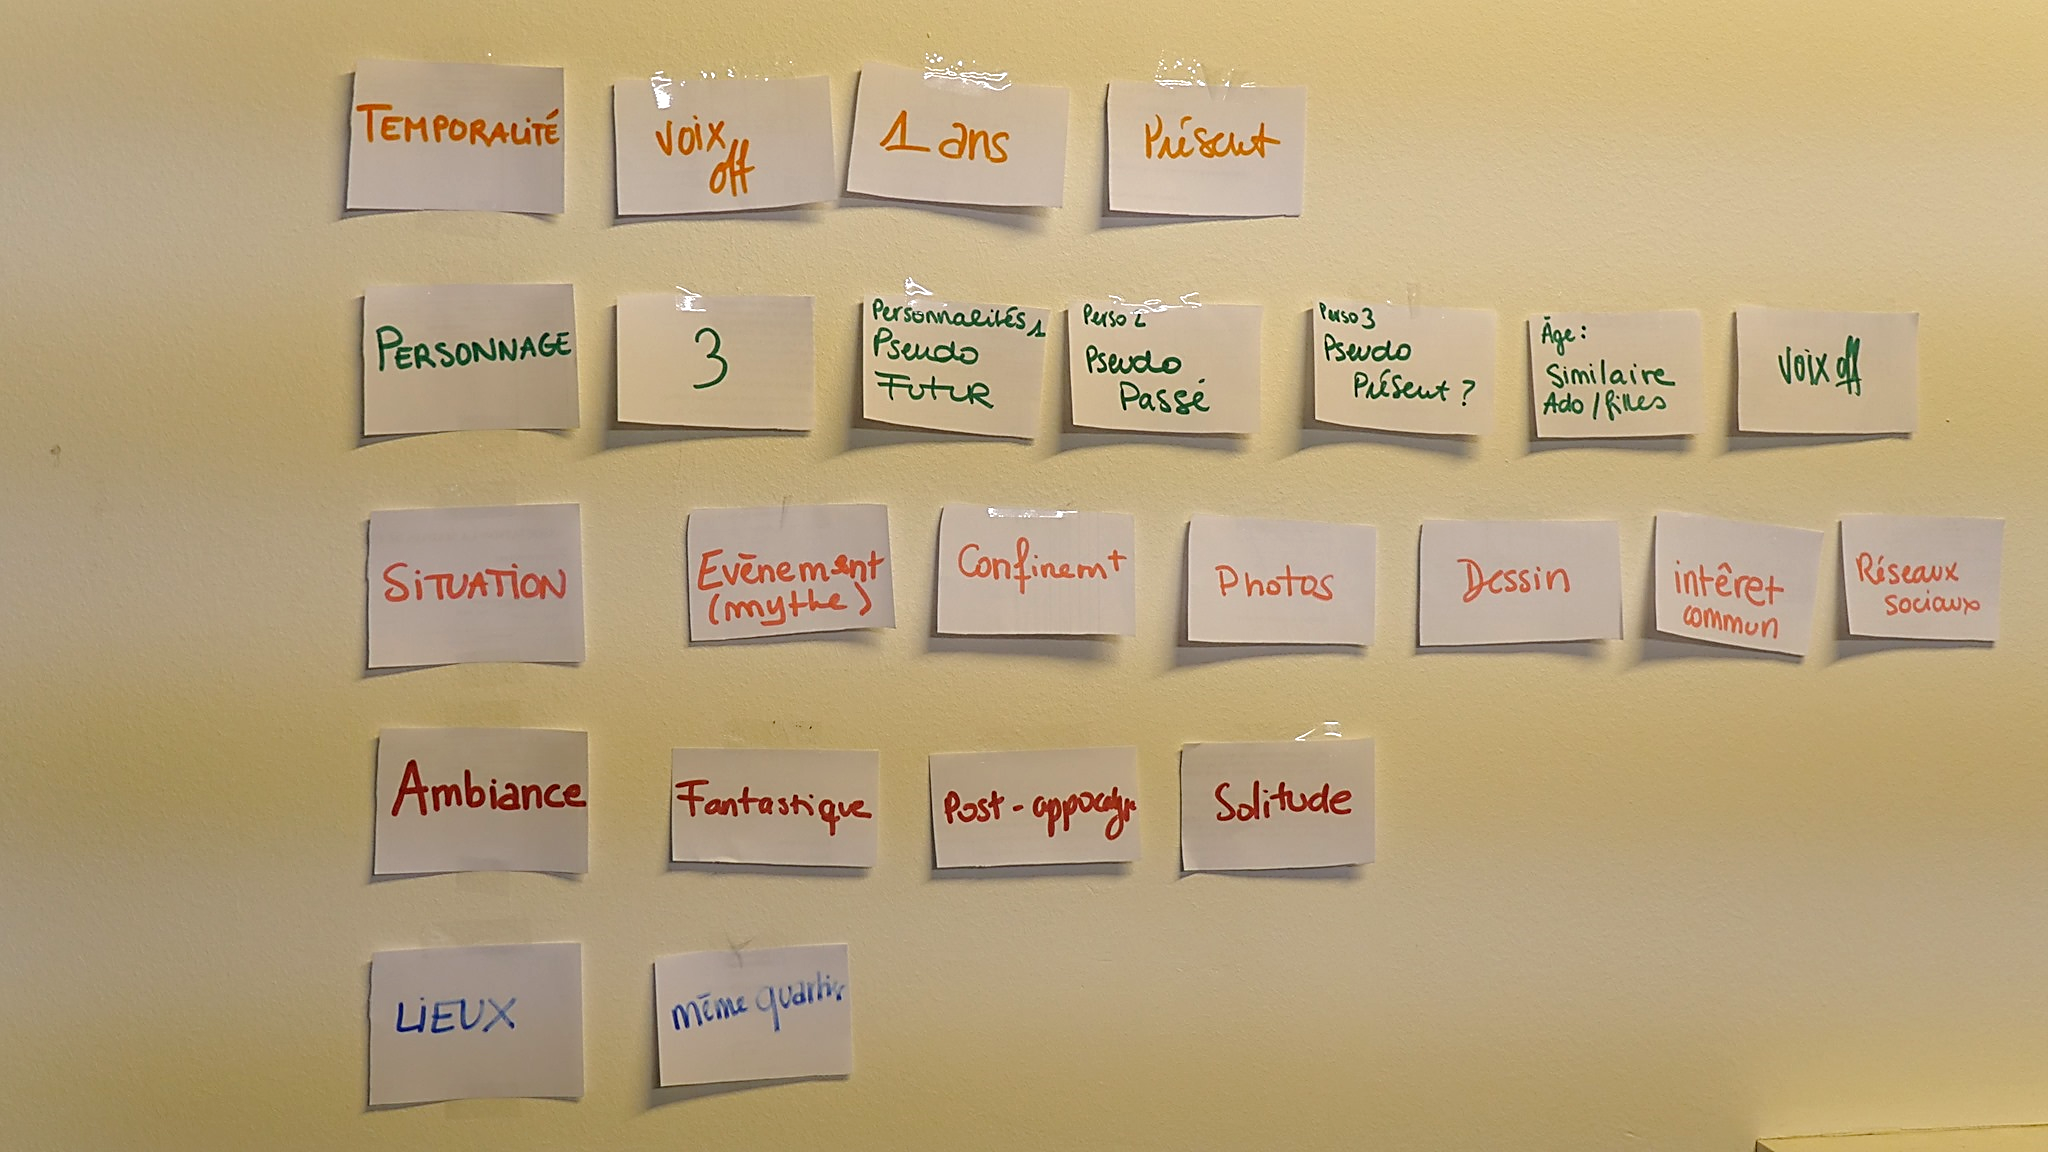 TEMPORALITÉ
voix
off
1 ans
Présent
PERSONNAGE
3
Personnalités 1
Pseudo
FUTUR
Perso 2
Pseudo
Passé
Perso 3
Pseudo
Présent ?
Âge :
Similaire
Ado / filles
voix off
SITUATION
Evènement
(mythe)
Confinemt
Photos
Dessin
intêret
commun
Réseaux
sociaux
Ambiance
Fantastique
Post-appocalyp
Solitude
LIEUX
même quartier